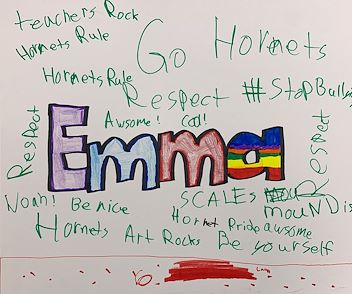 teachers Rock
Hornets Rule
Go Hornets
Hornets Rule
Respect
#StopBully
Awsome! Cool!
Respect
Emma
Respect
Noah! Be nice
SCALES
mouNDis
Hornet Pride awsome
Hornets Art Rocks Be yourself